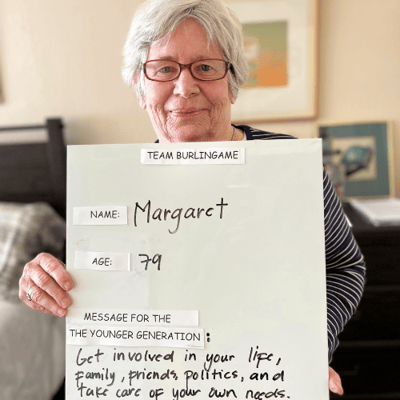 TEAM BURLINGAME
NAME: Margaret
AGE: 79
MESSAGE FOR THE
THE YOUNGER GENERATION :
Get involved in your life,
family, friends, politics, and
take care of your own needs.